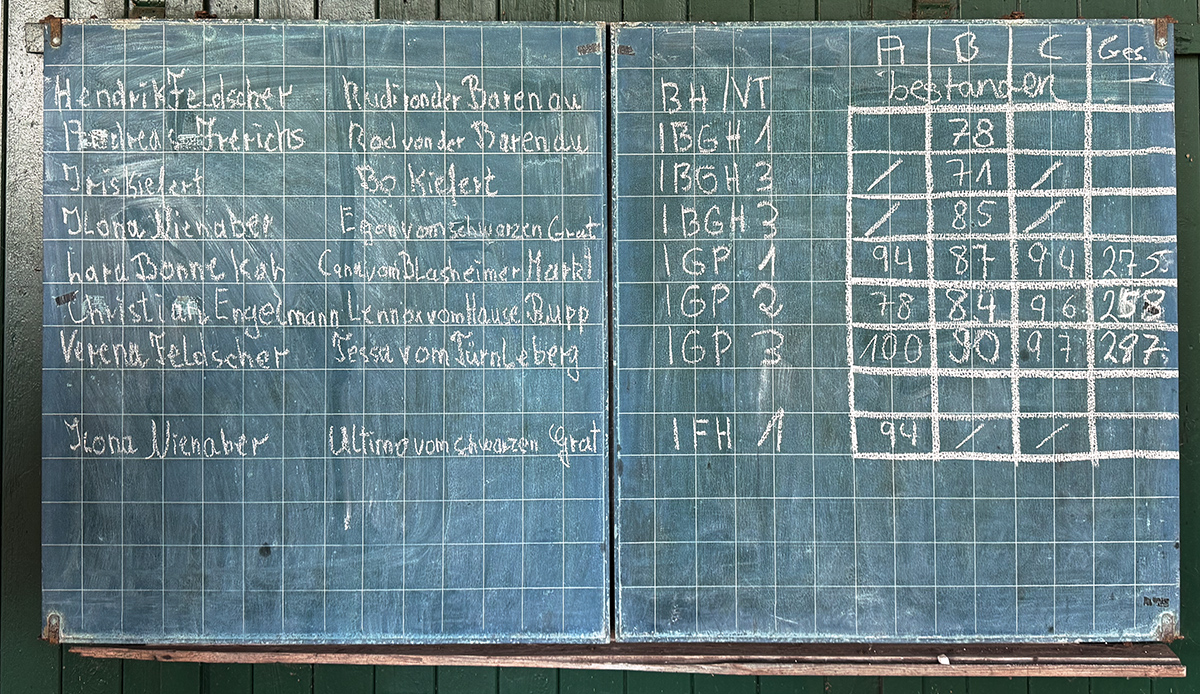 A B C Ges.
Hendrik Feldscher Rudi von der Barenau BH/VT bestanden
Andreas Frerichs Rod von der Barenau IBGH 1 78
Iris Kiefert Bo Kiefert IBGH 3 / 71 /
Ilona Nienaber Egon vom schwarzen Grat IBGH 3 / 85 /
Lara Bonnekah Cana vom Blasheimer Markt IGP 1 94 87 94 275
Christian Engelmann Lennox vom Hause Bupp IGP 2 78 84 96 258
Verena Feldscher Tessa vom Türnleberg IGP 3 100 90 97 287
Ilona Nienaber Ultimo vom schwarzen Grat IFH 1 94 / /